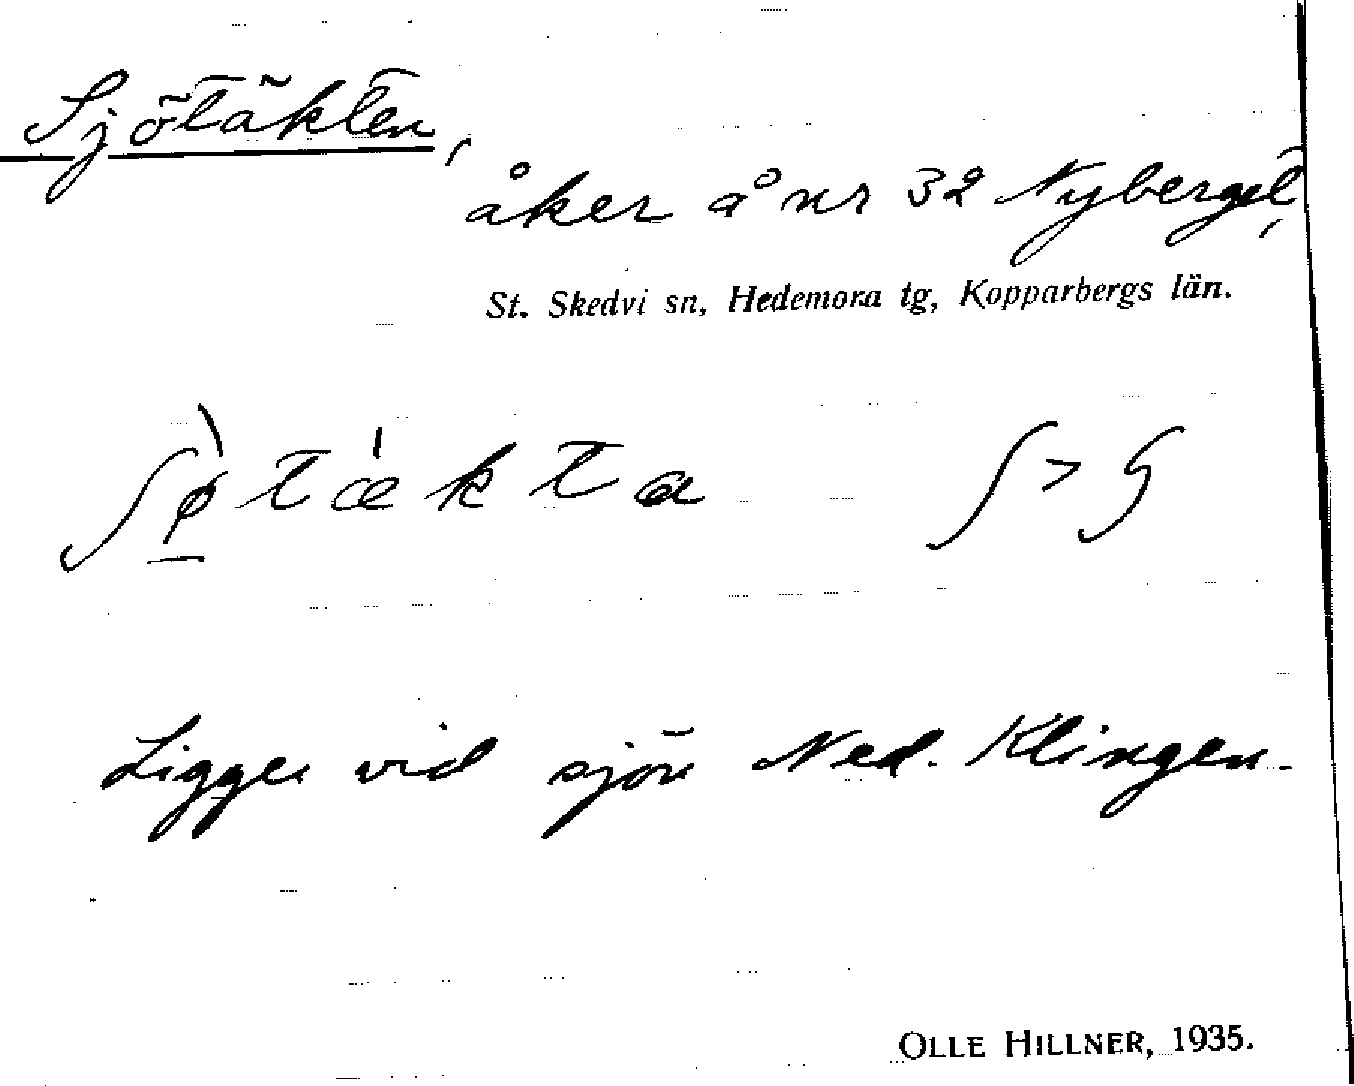 Sjötäkten,
åker å nr 32 Nyberget,
St. Skedvi sn, Hedemora tg, Kopparbergs län.
ʃø̠̀tǽkta ʃ > ʂ
Ligger vid sjön Ned. Klingen.
OLLE HILLNER, 1935.